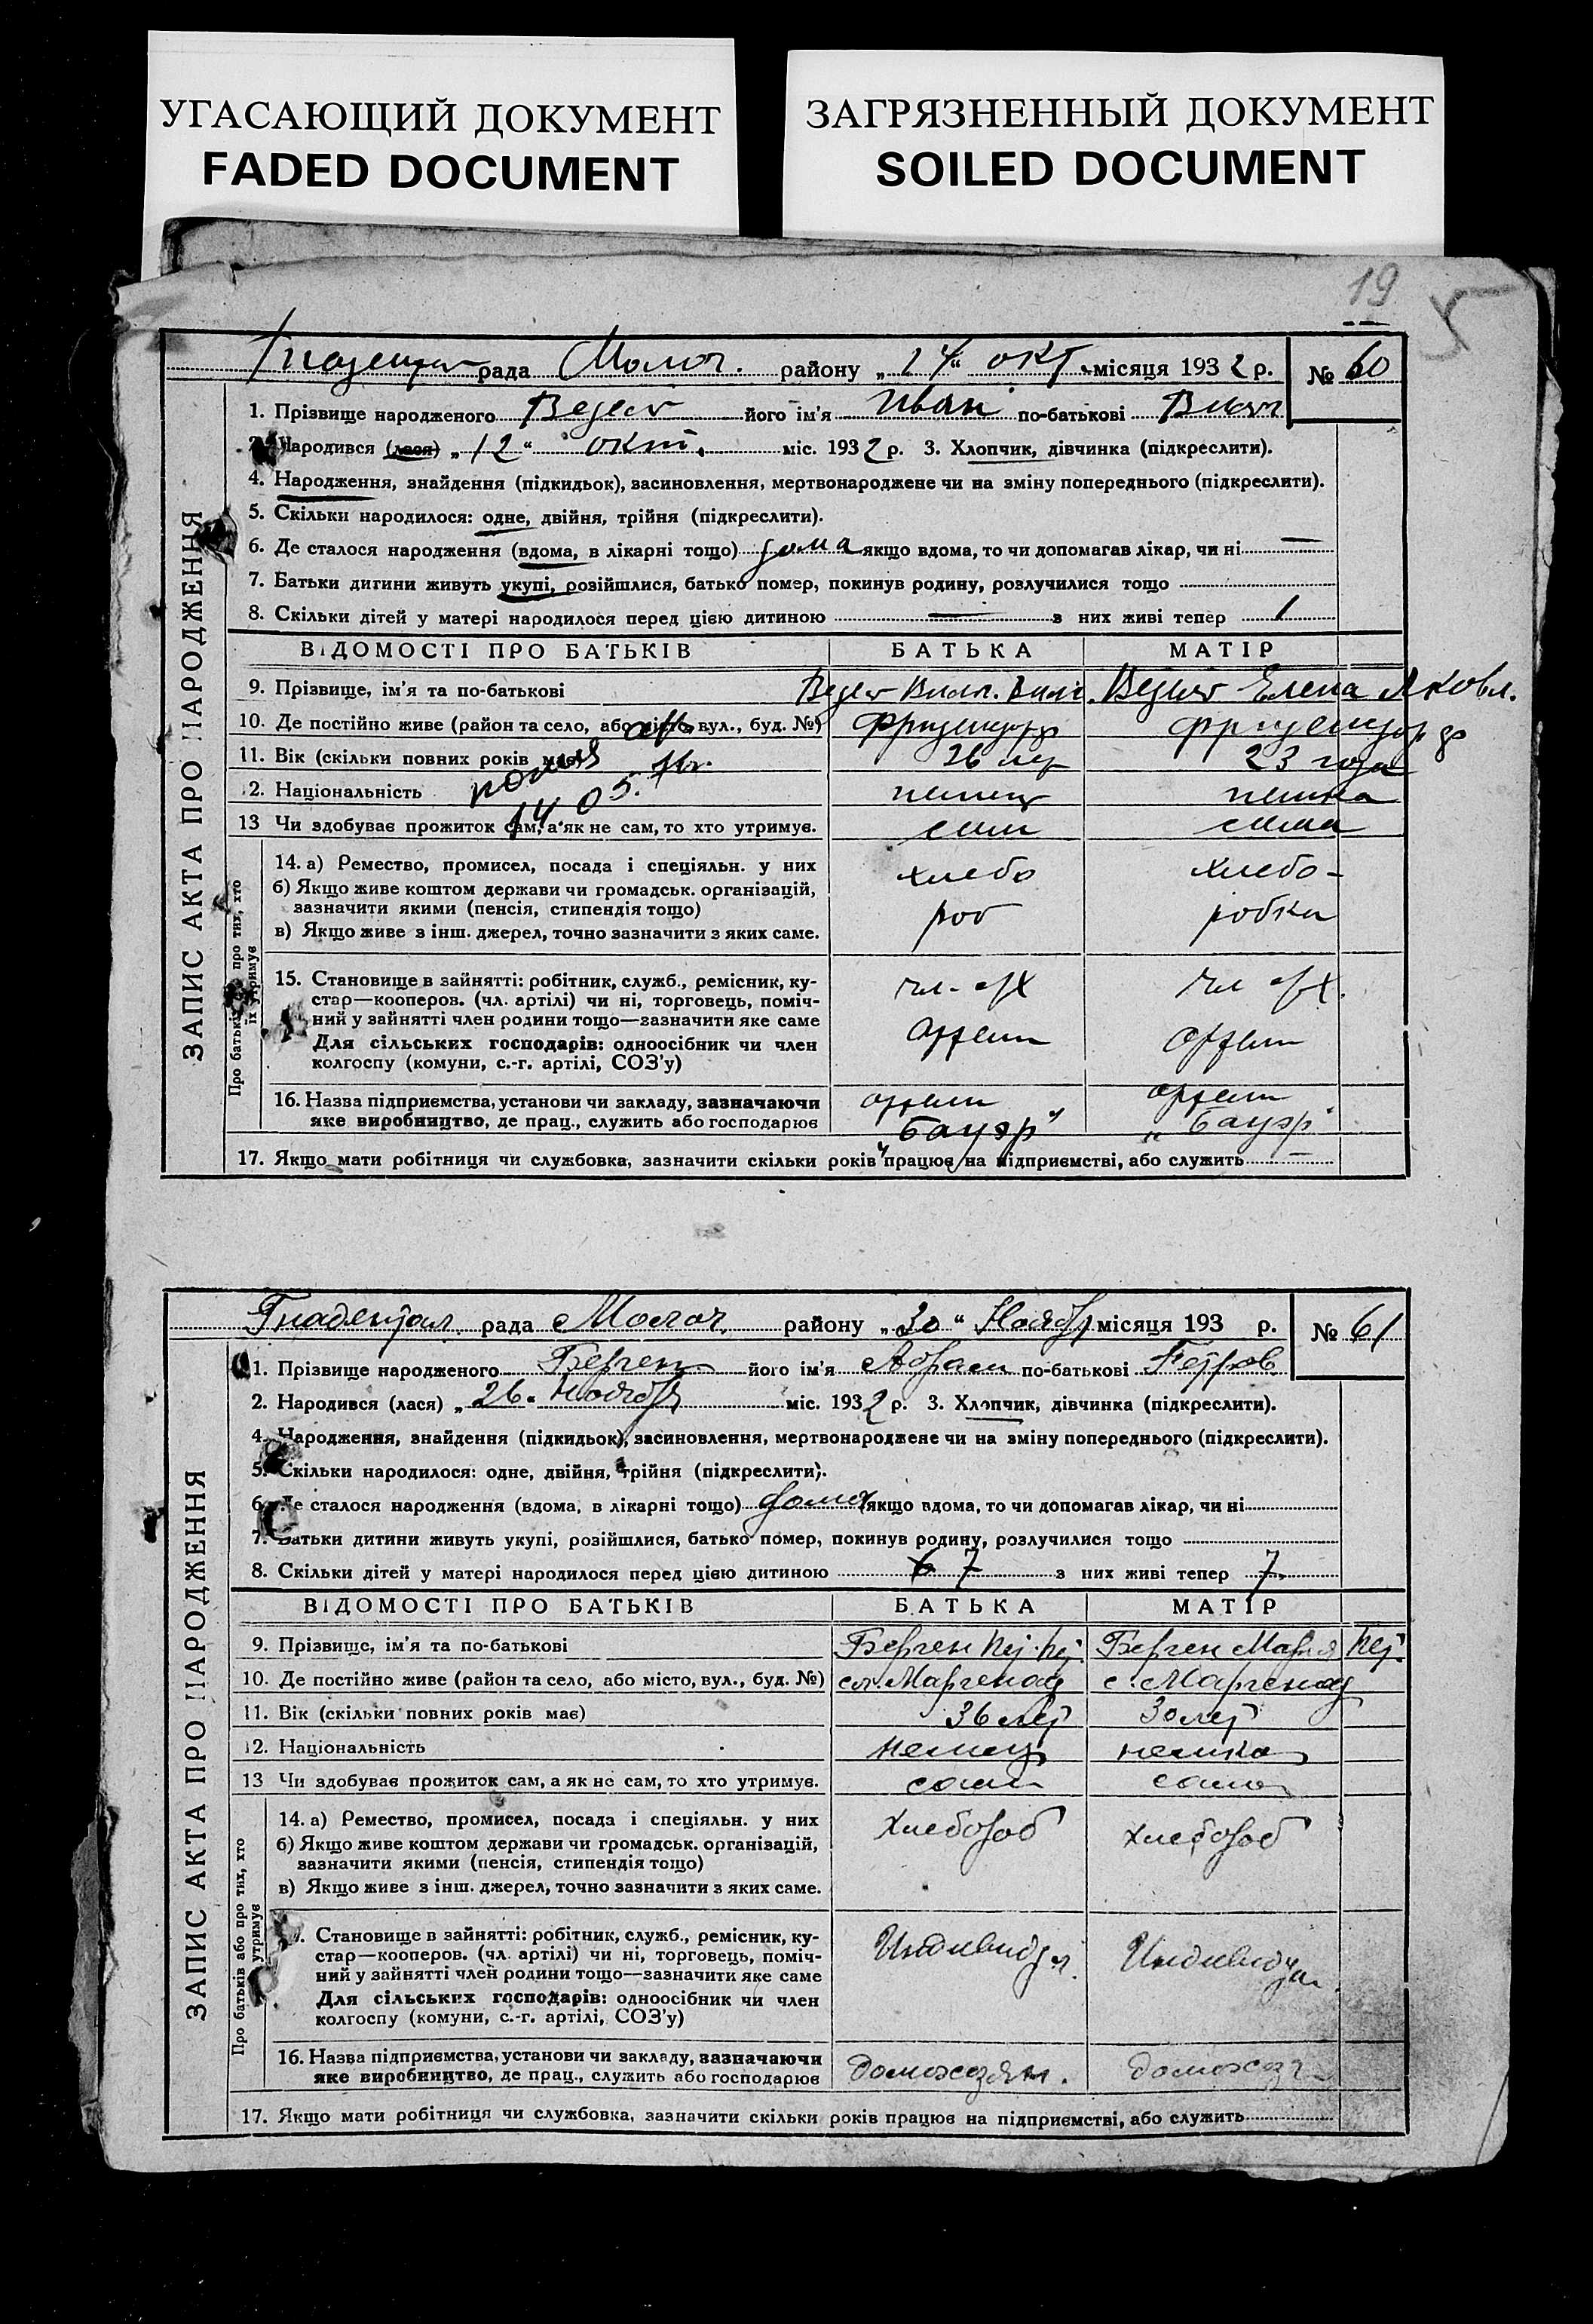 УГАСАЮЩИЙ ДОКУМЕНТ
FADED DOCUMENT
ЗАГРЯЗНЕННЫЙ ДОКУМЕНТ
SOILED DOCUMENT
19
5
ЗАПИС АКТА ПРО НАРОДЖЕННЯ
рада Молоч. району „24“ окт. місяця 1932 р. № 60
1. Прізвище народженого його ім'я Иван по-батькові
2. Народився (лася) „12“ окт. міс. 1932 р. 3. Хлопчик, дівчинка (підкреслити).
4. Народження, знайдення (підкидьок), засиновлення, мертвонароджене чи на зміну попереднього (підкреслити).
5. Скільки народилося: одне, двійня, трійня (підкреслити).
6. Де сталося народження (вдома, в лікарні тощо) дома якщо вдома, то чи допомагав лікар, чи ні —
7. Батьки дитини живуть укупі, розійшлися, батько помер, покинув родину, розлучилися тощо
8. Скільки дітей у матері народилося перед цією дитиною — з них живі тепер 1
ВІДОМОСТІ ПРО БАТЬКІВ БАТЬКА МАТІР
9. Прізвище, ім'я та по-батькові Елена Яковл.
10. Де постійно живе (район та село, або місто, вул., буд. №)
11. Вік (скільки повних років має) 26 лет 23 года
12. Національність немец немка
14.05.
13 Чи здобуває прожиток сам, а як не сам, то хто утримує. сам сама
Про батьків або про тих, хто їх утримує
14. а) Ремество, промисел, посада і спеціяльн. у них хлебо хлебо-
б) Якщо живе коштом держави чи громадськ. організацій,
зазначити якими (пенсія, стипендія тощо) роб робка
в) Якщо живе з інш. джерел, точно зазначити з яких саме.
15. Становище в зайнятті: робітник, служб., ремісник, ку-
стар—кооперов. (чл. артілі) чи ні, торговець, поміч-
ний у зайнятті член родини тощо—зазначити яке саме
Для сільських господарів: одноосібник чи член
колгоспу (комуни, с.-г. артілі, СОЗ'у)
16. Назва підприємства, установи чи закладу, зазначаючи
яке виробництво, де прац., служить або господарює „Бауэр“ „Бауэр“
17. Якщо мати робітниця чи службовка, зазначити скільки років працює на підприємстві, або служить —
ЗАПИС АКТА ПРО НАРОДЖЕННЯ
Гнадентал рада Молоч. району „30“ Ноября місяця 193 р. № 61
1. Прізвище народженого Берген його ім'я Абрам по-батькові Петров
2. Народився (лася) „26. Ноября міс. 1932 р. 3. Хлопчик, дівчинка (підкреслити).
4. Народження, знайдення (підкидьок), засиновлення, мертвонароджене чи на зміну попереднього (підкреслити).
5. Скільки народилося: одне, двійня, трійня (підкреслити).
6. Де сталося народження (вдома, в лікарні тощо) дома якщо вдома, то чи допомагав лікар, чи ні
7. Батьки дитини живуть укупі, розійшлися, батько помер, покинув родину, розлучилися тощо
8. Скільки дітей у матері народилося перед цією дитиною 7 з них живі тепер 7.
ВІДОМОСТІ ПРО БАТЬКІВ БАТЬКА МАТІР
9. Прізвище, ім'я та по-батькові Берген Пет. Пет. Берген Мария Пет.
10. Де постійно живе (район та село, або місто, вул., буд. №) с. Маргенау с. Маргенау
11. Вік (скільки повних років має) 36 лет 30 лет
12. Національність немец немка
13 Чи здобуває прожиток сам, а як не сам, то хто утримує. сам сама
Про батьків або про тих, хто їх утримує
14. а) Ремество, промисел, посада і спеціяльн. у них Хлебороб хлебороб
б) Якщо живе коштом держави чи громадськ. організацій,
зазначити якими (пенсія, стипендія тощо)
в) Якщо живе з інш. джерел, точно зазначити з яких саме.
Становище в зайнятті: робітник, служб., ремісник, ку- Индивидуал. Индивидуал.
стар—кооперов. (чл. артілі) чи ні, торговець, поміч-
ний у зайнятті член родини тощо—зазначити яке саме
Для сільських господарів: одноосібник чи член
колгоспу (комуни, с.-г. артілі, СОЗ'у)
16. Назва підприємства, установи чи закладу, зазначаючи
яке виробництво, де прац., служить або господарює домохозяин.
17. Якщо мати робітниця чи службовка, зазначити скільки років працює на підприємстві, або служить